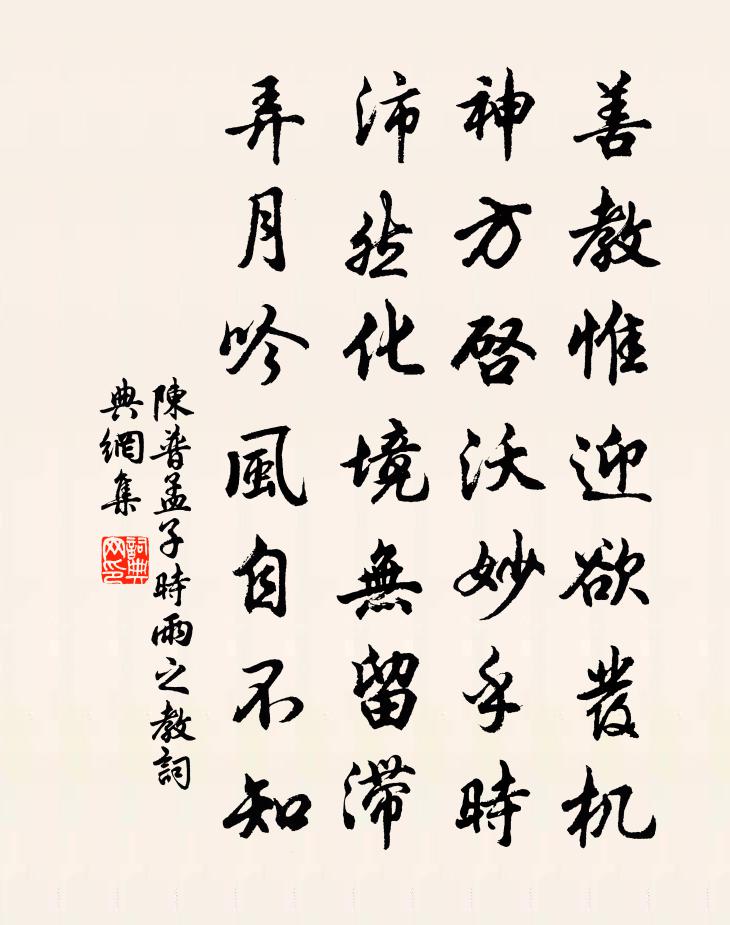 善教惟迎欲發机
神方啓沃妙乎時
沛然化境無留滞
弄月吟風自不知
陳普孟子時雨之教詞
典網集
詞典
网印